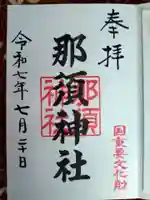 奉拝
国重要文化財
那須神社
令和七年七月二十日